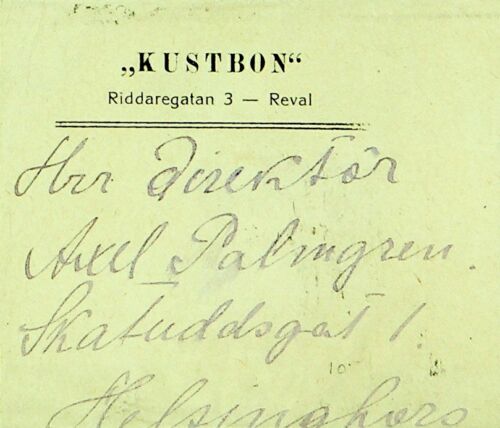 „KUSTBON“
Riddaregatan 3 — Reval
Herr Direktör
Axel Palmgren.
Skatuddsgat 1.
10
Helsingfors